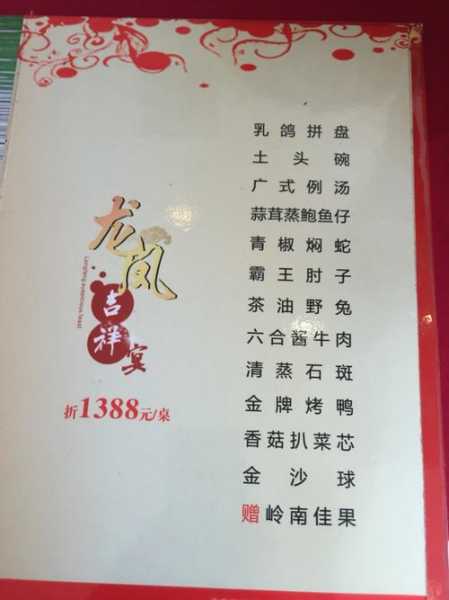 龙凤
吉祥
宴
折1388元/桌
乳鸽拼盘
土头碗
广式例汤
蒜茸蒸鲍鱼仔
青椒焖蛇
霸王肘子
茶油野兔
六合酱牛肉
清蒸石斑
金牌烤鸭
香菇扒菜芯
金沙球
赠岭南佳果